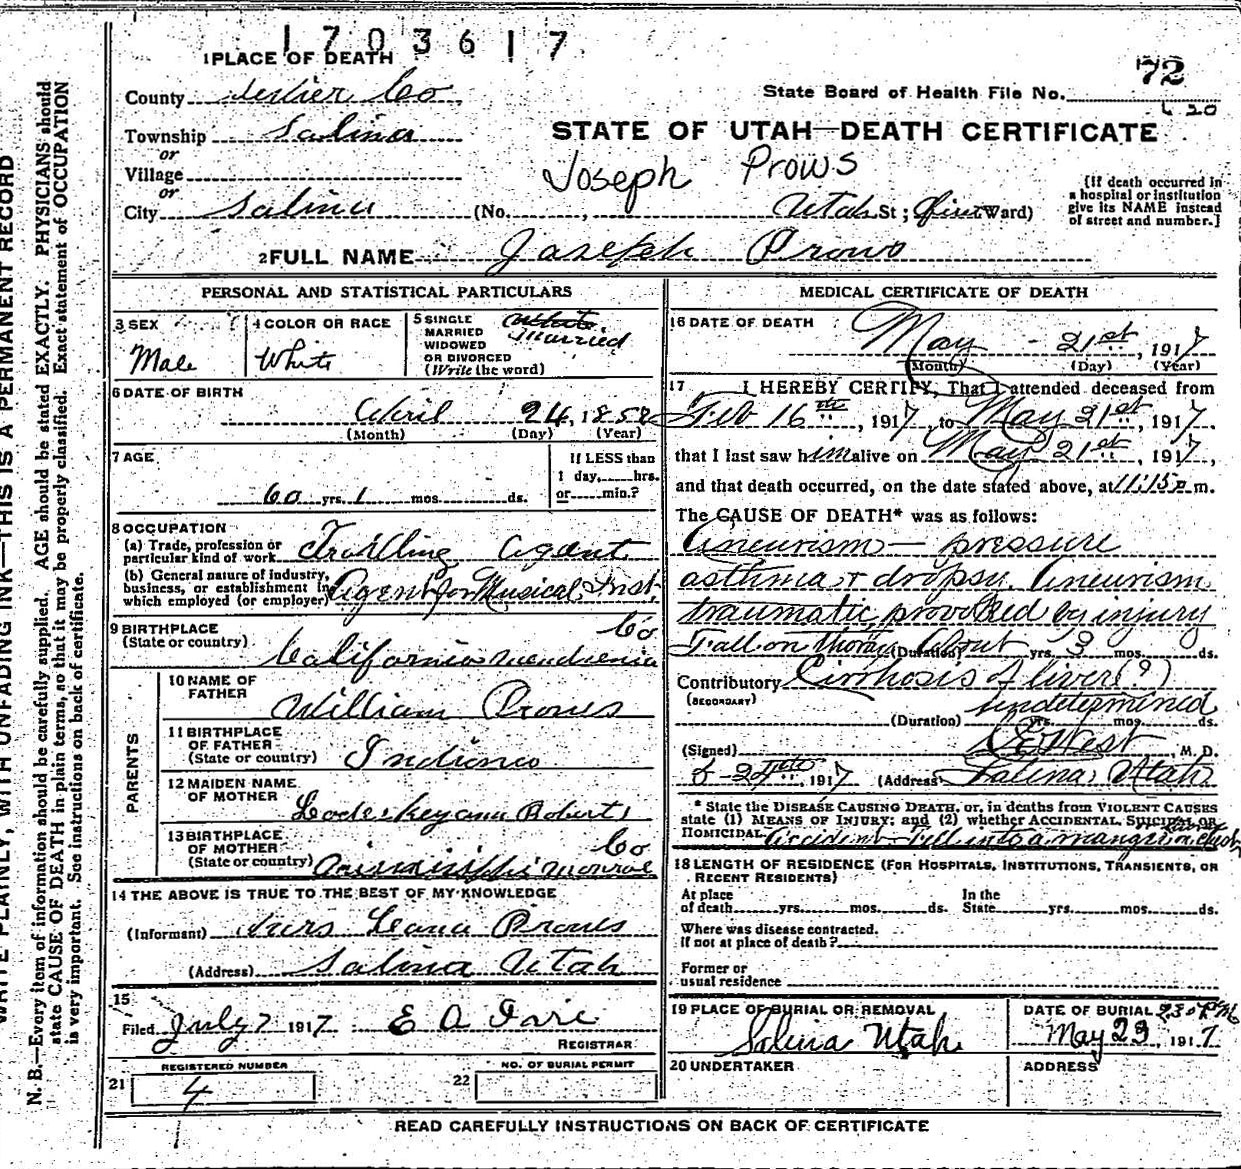 1703617
1 PLACE OF DEATH
72
County Sevier Co
State Board of Health File No.
Township Salina
STATE OF UTAH—DEATH CERTIFICATE
or
Village
Joseph Prows
or
City Salina (No. , Utah St ; First Ward)
[If death occurred in
a hospital or institution
give its NAME instead
of street and number.]
2 FULL NAME Joseph Prows
PERSONAL AND STATISTICAL PARTICULARS
3 SEX
Male
4 COLOR OR RACE
White
5 SINGLE
MARRIED
WIDOWED
OR DIVORCED
(Write the word)
Married
6 DATE OF BIRTH
April 24, 1858
(Month) (Day) (Year)
7 AGE
60 yrs. 1 mos. ds.
If LESS than
1 day, hrs.
or min.?
8 OCCUPATION
(a) Trade, profession or
particular kind of work Travling Agent
(b) General nature of industry,
business, or establishment in
which employed (or employer) Agent for Musical Inst.
9 BIRTHPLACE
(State or country)
Co
California
PARENTS
10 NAME OF
FATHER
William Prows
11 BIRTHPLACE
OF FATHER
(State or country) Indiana
12 MAIDEN NAME
OF MOTHER
Roberts
13 BIRTHPLACE
OF MOTHER
(State or country)
Co
Monroe
14 THE ABOVE IS TRUE TO THE BEST OF MY KNOWLEDGE
(Informant) Mrs Leana Prows
(Address) Salina Utah
15
Filed July 7 1917 E A
REGISTRAR
REGISTERED NUMBER
21 4
NO. OF BURIAL PERMIT
22
MEDICAL CERTIFICATE OF DEATH
16 DATE OF DEATH
May 21st, 1917
(Month) (Day) (Year)
17 I HEREBY CERTIFY, That I attended deceased from
Feb 16th, 1917, to May 21st, 1917,
that I last saw him alive on May 21st, 1917,
and that death occurred, on the date stated above, at 11:15 p m.
The CAUSE OF DEATH* was as follows:
Aneurism — pressure
asthma & dropsy. Aneurism
traumatic, provoked by injury
Fall on thorax (Duration) About yrs. 3 mos. ds.
Contributory Cirrhosis of liver (?)
(SECONDARY)
undetermined
(Duration) yrs. mos. ds.
(Signed) West, M. D.
5-24th, 1917 (Address) Salina, Utah
* State the DISEASE CAUSING DEATH, or, in deaths from VIOLENT CAUSES
state (1) MEANS OF INJURY; and (2) whether ACCIDENTAL, SUICIDAL OR
HOMICIDAL. Accident - Fell into a manger
18 LENGTH OF RESIDENCE (FOR HOSPITALS, INSTITUTIONS, TRANSIENTS, OR
RECENT RESIDENTS)
At place
of death yrs. mos. ds.
In the
State yrs. mos. ds.
Where was disease contracted.
if not at place of death?
Former or
usual residence
19 PLACE OF BURIAL OR REMOVAL
Salina Utah
DATE OF BURIAL
May 23, 1917
20 UNDERTAKER
ADDRESS
READ CAREFULLY INSTRUCTIONS ON BACK OF CERTIFICATE
WRITE PLAINLY, WITH UNFADING INK—THIS IS A PERMANENT RECORD
N. B.—Every item of information should be carefully supplied. AGE should be stated EXACTLY. PHYSICIANS should
state CAUSE OF DEATH in plain terms, so that it may be properly classified. Exact statement of OCCUPATION
is very important. See instructions on back of certificate.